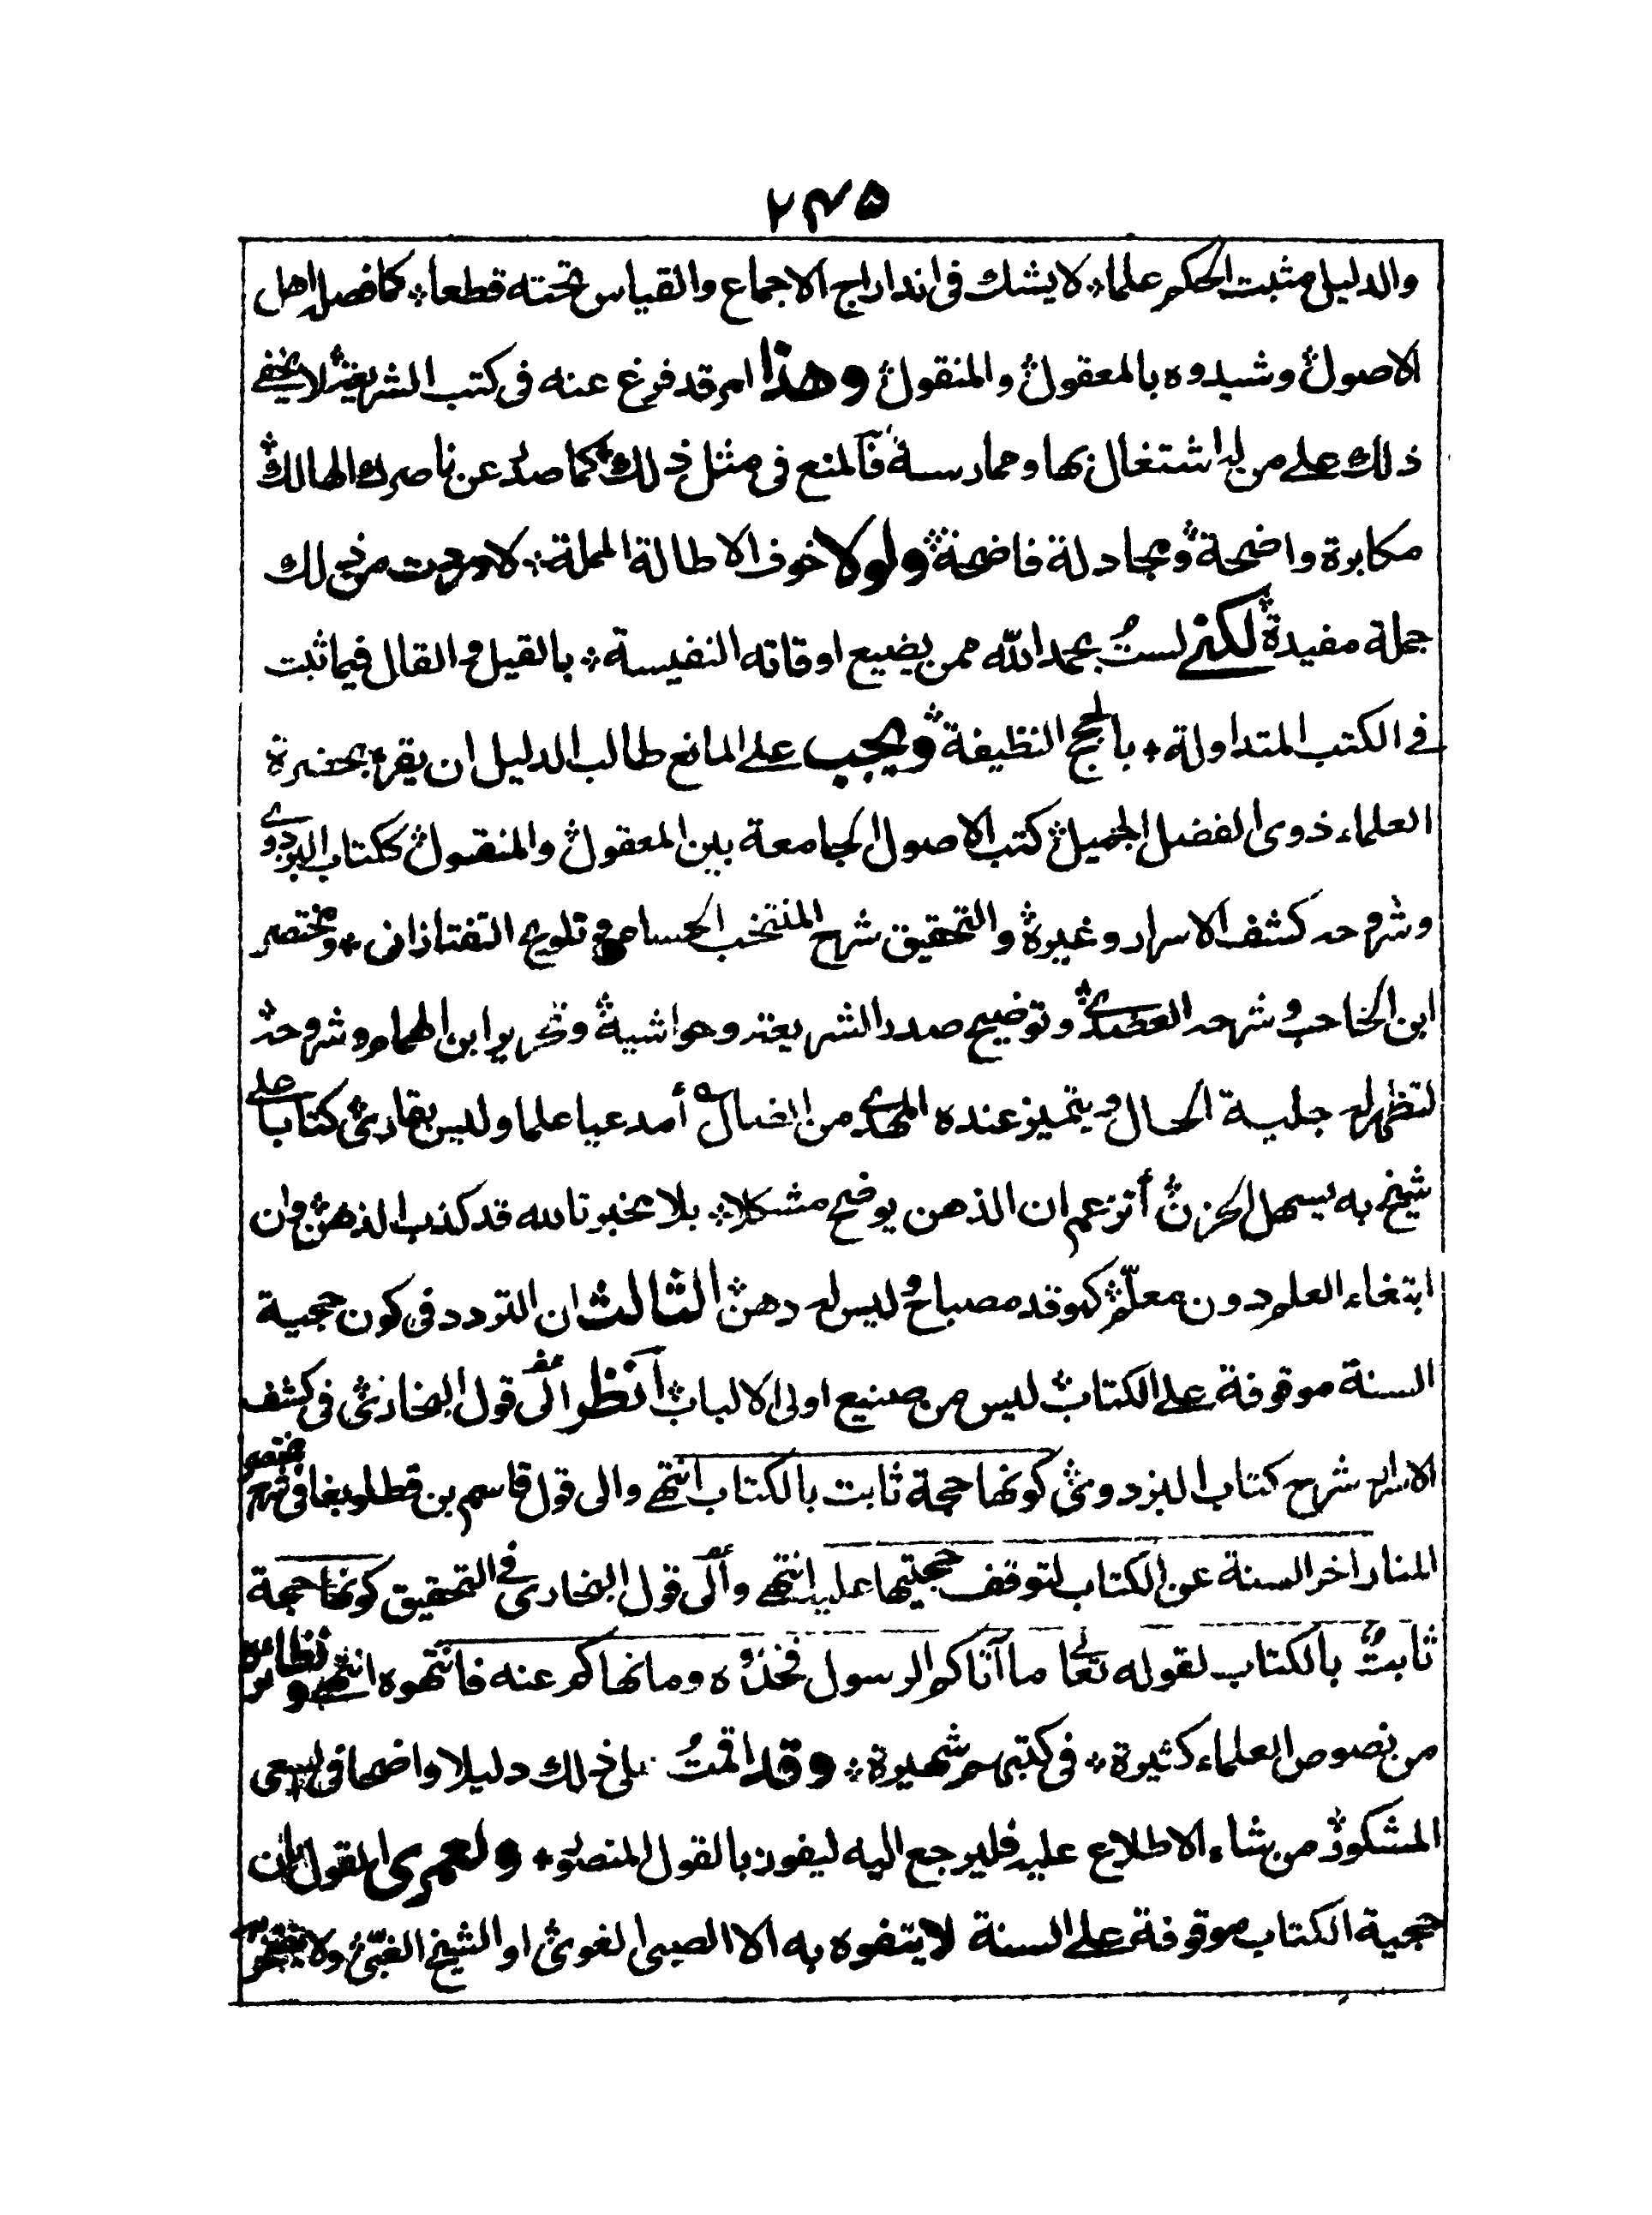 ٢٤٥
والدليل مثبت الحكم علما لا يشك فى اندراج الاجماع والقياس تحته قطعا كما فصل اهل
الاصول وشيدوه بالمعقول والمنقول وهذا امر قد فرغ عنه فى كتب الشريعة لا يخفے
ذلك علے من له اشتغال بها وممارسة فالمنع فى مثل ذلك كما صدر عن ناصرك الهالك
مكابرة واضحة ومجادلة فاضحة ولولا خوف الاطالة المملة لاوردت من ذلك
جملة مفيدة لكنے لستُ بحمد الله ممن يضيع اوقاته النفيسة بالقيل والقال فيما ثبت
فے الكتب المتداولة بالحجج النظيفة ويجب علے المانع طالب الدليل ان يقرء بحضرة
العلماء ذوى الفضل الجميل كتب الاصول الجامعة بين المعقول والمنقول ككتاب البزدوے
وشروحه كشف الاسرار وغيره والتحقيق شرح المنتخب الحسامى وتلويح التفتازانى ومختصر
ابن الحاجب وشرحه العضدے وتوضيح صدر الشريعة وحواشيه وتحرير ابن الهمام وشروحه
لتظهر له جلية الحال ويتميز عنده المهدے من الضال أمدعيا علما وليس بقارئ كتابا علے
شيخ به يسهل الحزن أتزعم ان الذهن يوضح مشكلا بلا مخبر تالله قد كذب الذهن وان
ابتغاء العلم دون معلّم كموقد مصباح وليس له دهن الثالث ان التردد فى كون حجية
السنة موقوفة علے الكتاب ليس من صنيع اولى الالباب انظر الى قول البخارى فى كشف
الاسرار شرح كتاب البزدوى كونها حجة ثابت بالكتاب انتهے والى قول قاسم بن قطلوبغا فى شرح مختصر
المنار اخر السنة عن الكتاب لتوقف حجيتها عليه انتهے والى قول البخارى فے التحقيق كونها حجة
ثابتُ بالكتاب لقوله تعالے ما آتاكم الرسول فخذوه وما نهاكم عنه فانتهوه انتهے ونظائره
من نصوص العلماء كثيرة فى كتبهم شهيرة وقد اقمتُ على ذلك دليلا واضحا فى السعى
المشكور من شاء الاطلاع عليه فليرجع اليه ليفوز بالقول المنصور ولعمرى القول بان
حجية الكتاب موقوفة علے السنة لا يتفوه به الا الصبى الغوى او الشيخ الغبّى ولا